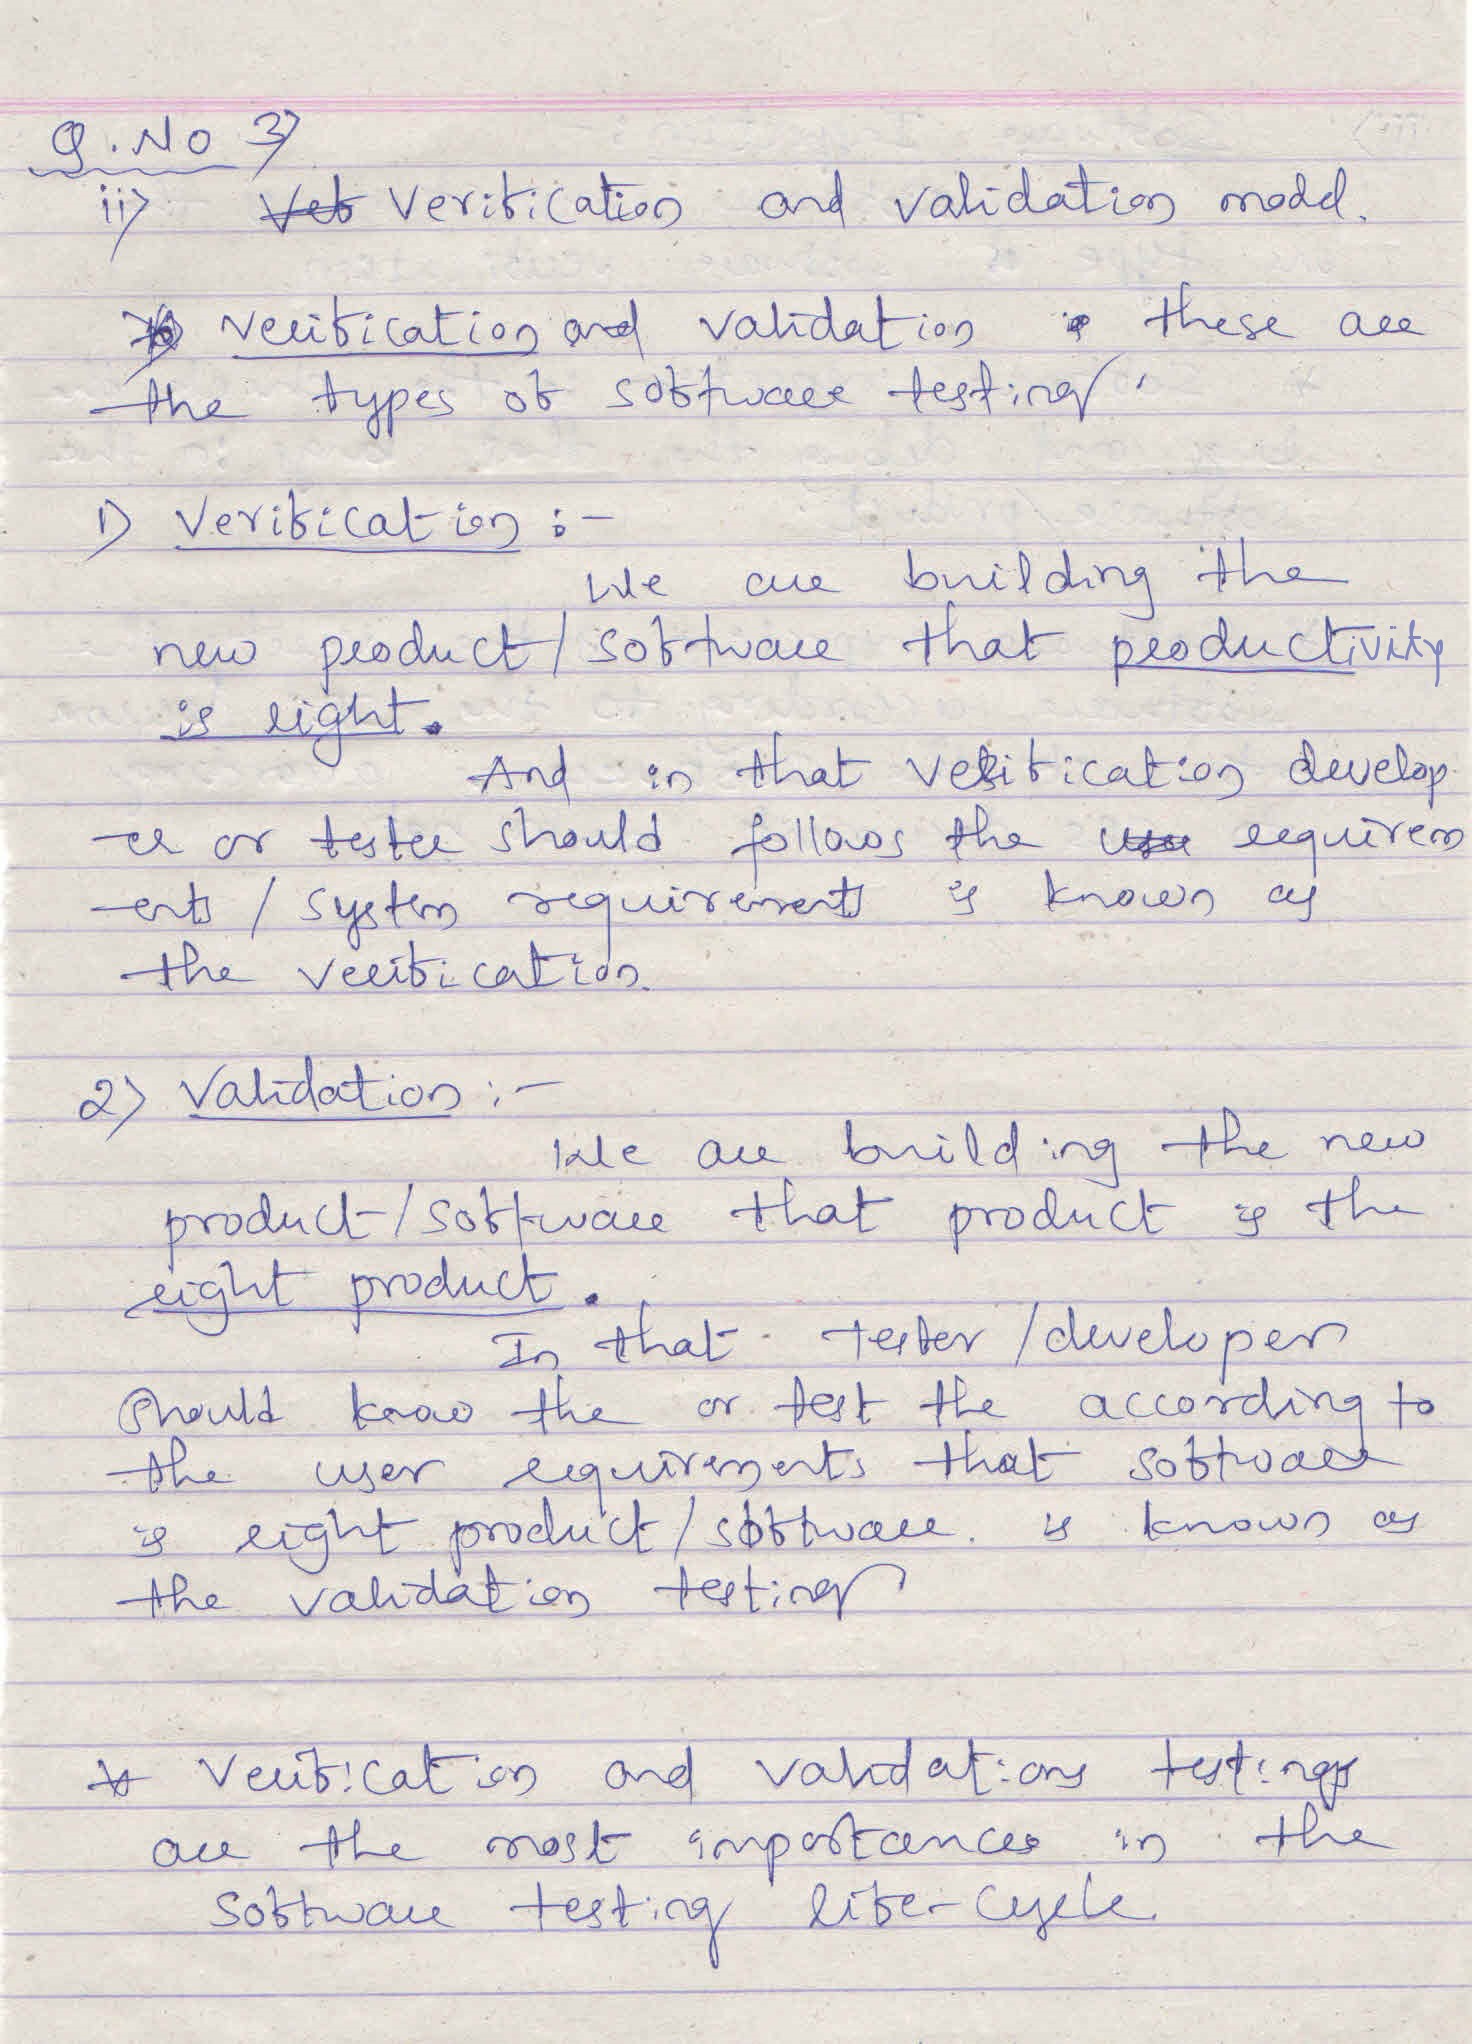 Q.No 3)
ii) Verification and validation model.
Verification and validation these are
the types of software testing.
1) Verification :-
We are building the
new product/software that productivity
is right.
And in that verification develop
-er or tester should follows the requirem
-ents / system requirements is known as
the verification.
2) Validation :-
We are building the new
product/software that product is the
right product.
In that tester/developer
should know the or test the according to
the user requirements that software
is right product/software. is known as
the validation testing
* Verification and validations testings
are the most importances in the
software testing life-cycle.